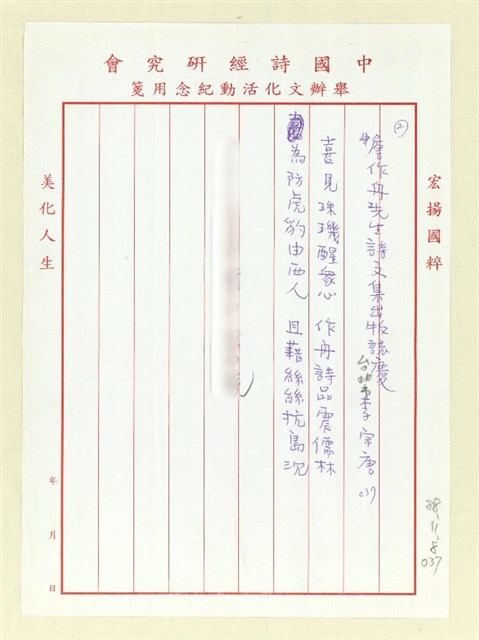 中國詩經研究會
舉辦文化活動紀念用箋
宏揚國粹
②
詹作舟先生詩文集出版誌慶
台北市李宗唐 037
喜見珠璣醒眾心 作舟詩品震儒林
為防虎豹由西人 且藉絲絲抗島沉
美化人生
年 月 日
88-11-8
037